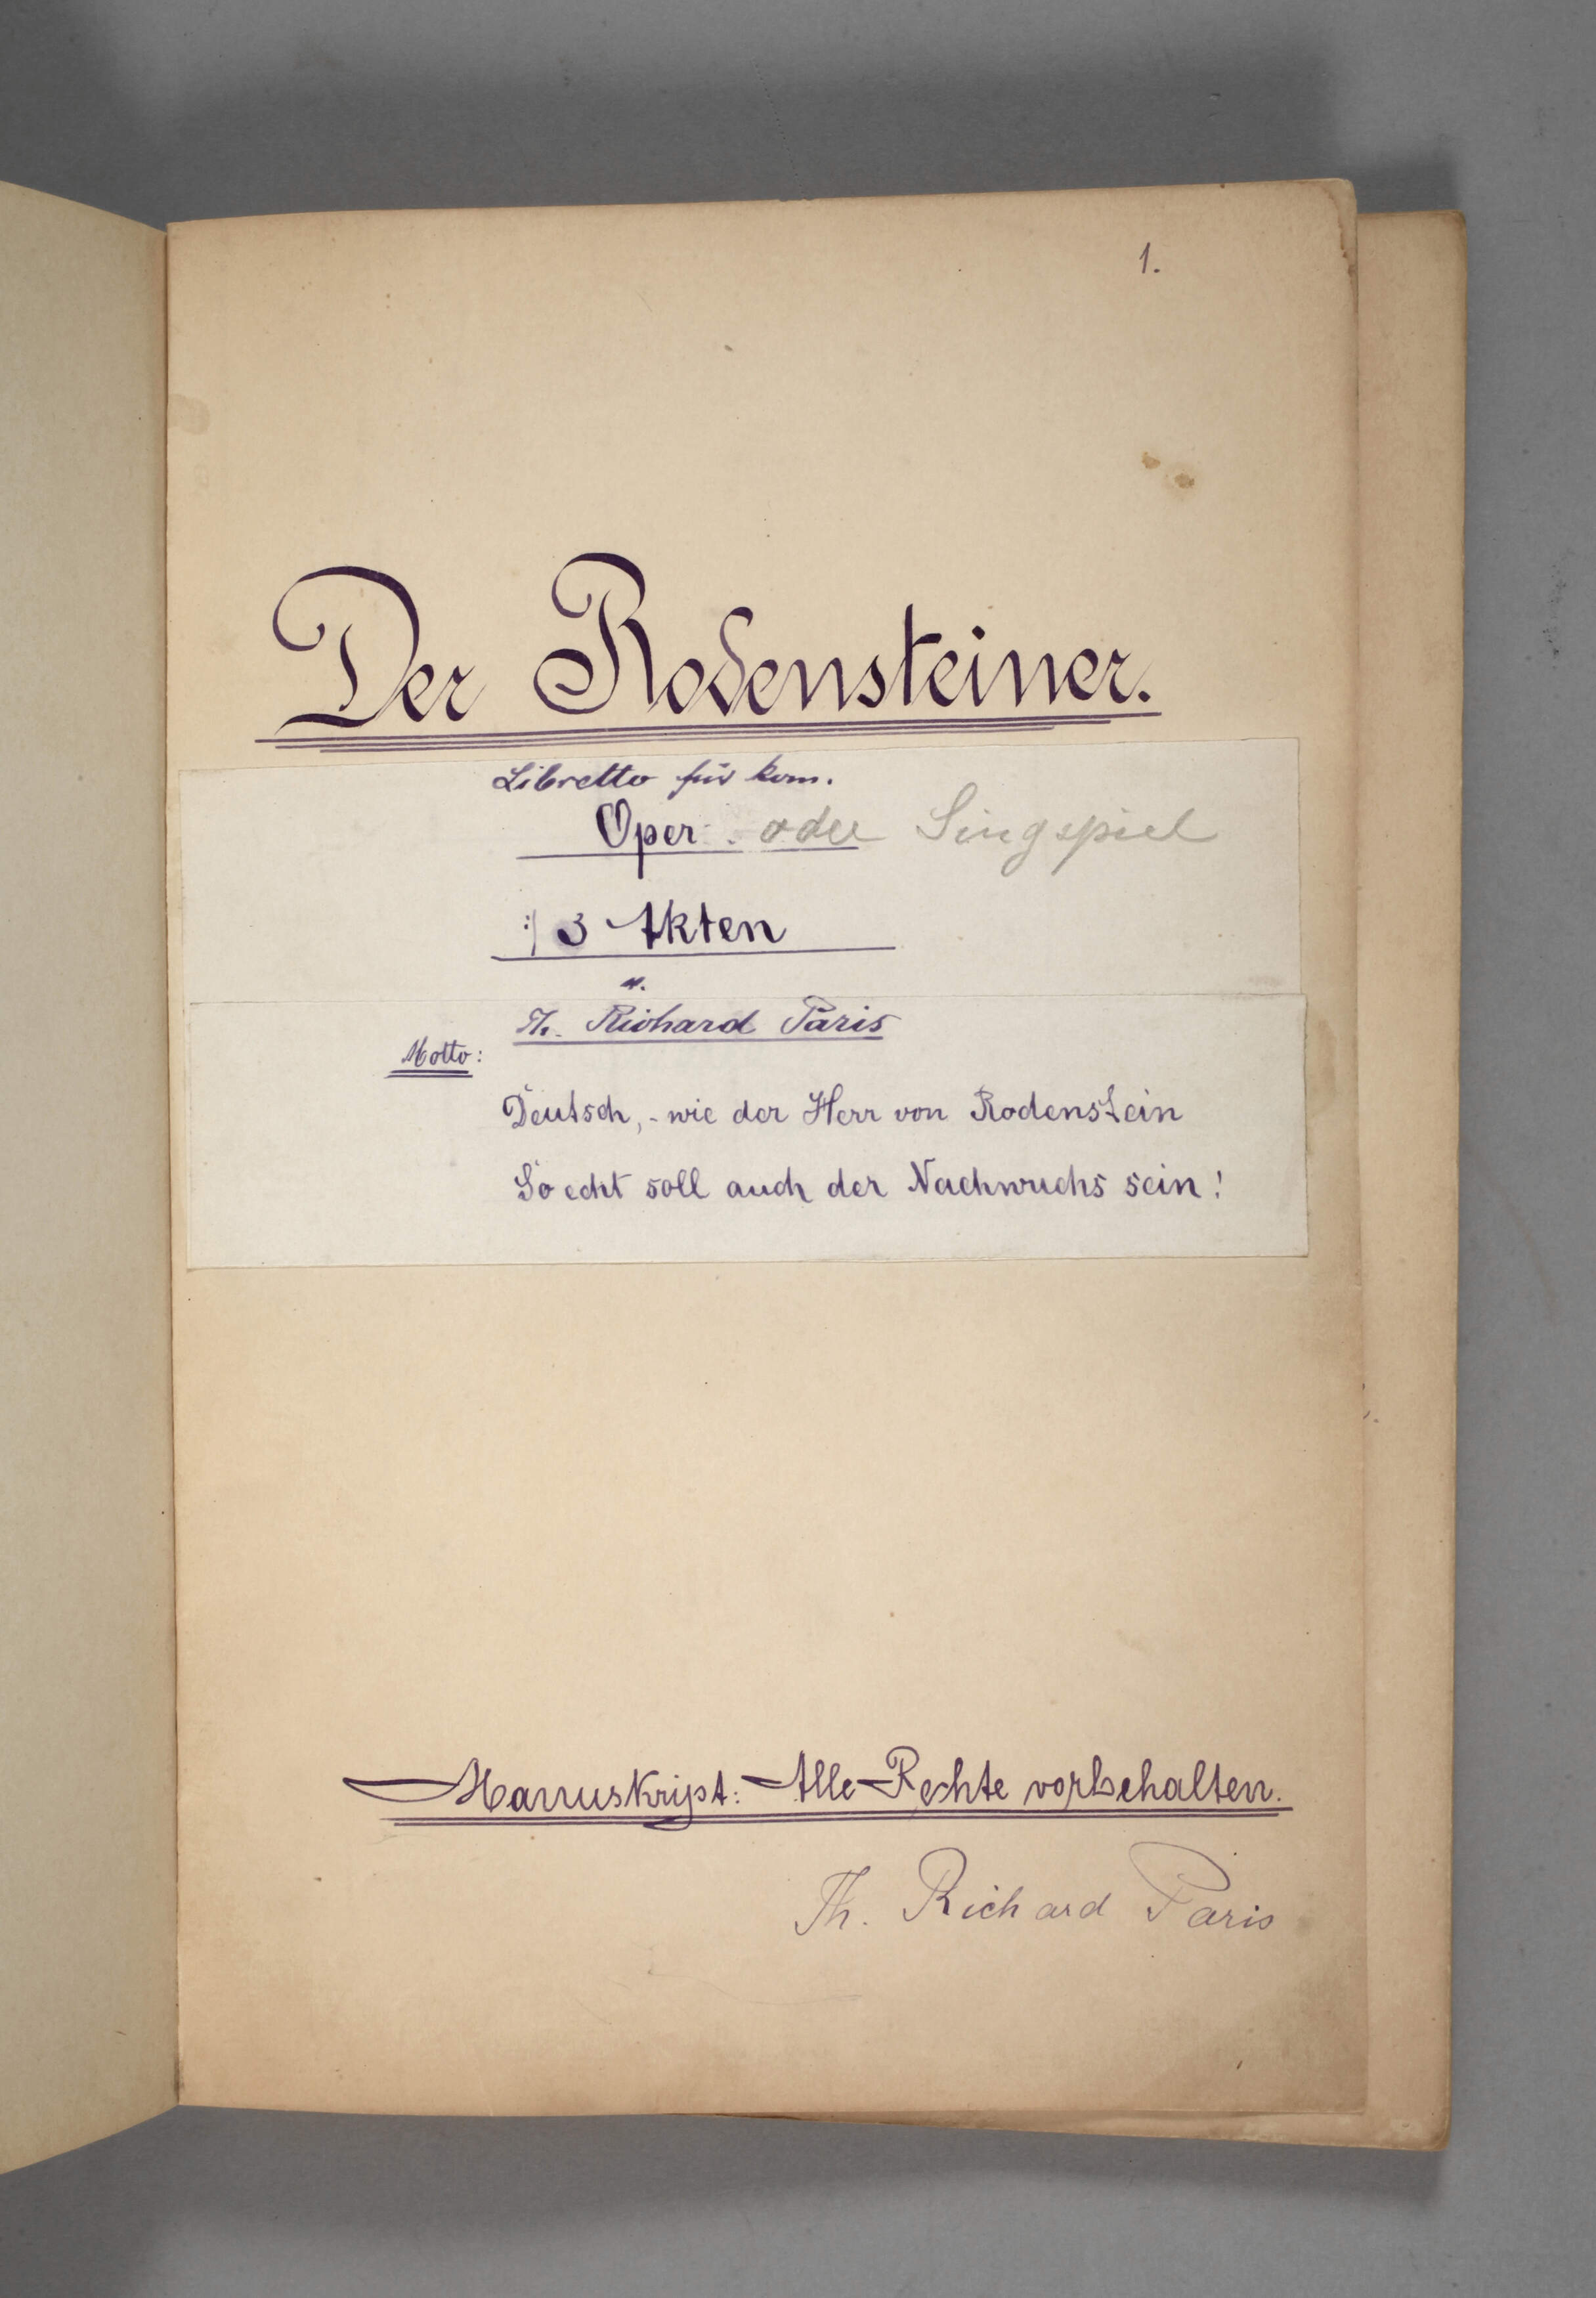 1.
Der Rodensteiner.
Libretto für kom.
Oper oder Singspiel
3 Akten
v.
Th. Richard Paris
Motto:
Deutsch, - wie der Herr von Rodenstein
So echt soll auch der Nachwuchs sein!
Manuskript: Alle Rechte vorbehalten.
Th. Richard Paris